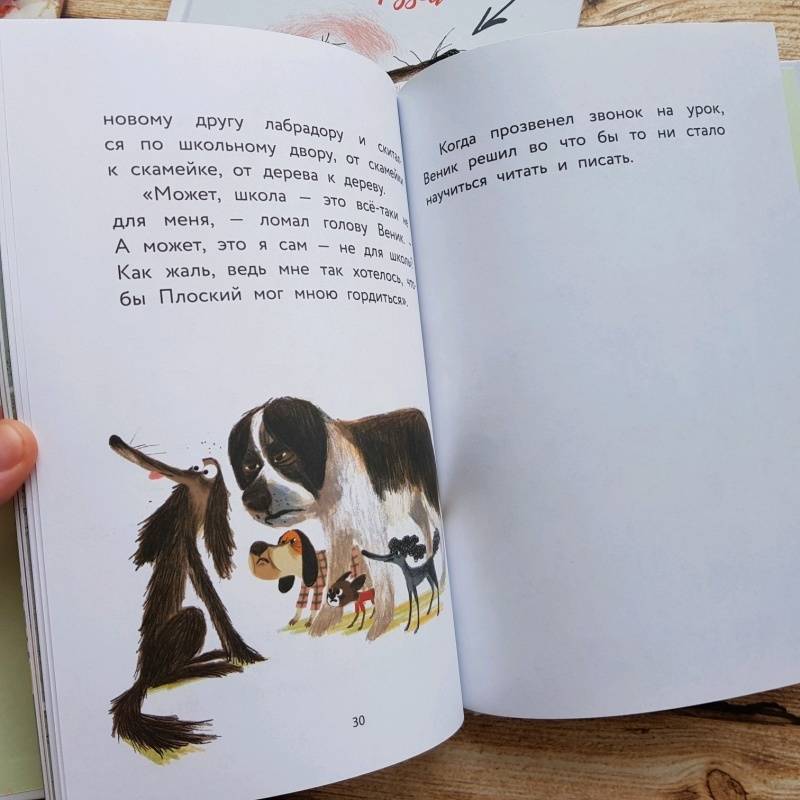 новому другу лабрадору и скитал-
ся по школьному двору, от скамейки
к скамейке, от дерева к дереву.
«Может, школа — это всё-таки не
для меня, — ломал голову Веник. —
А может, это я сам — не для школы?
Как жаль, ведь мне так хотелось, что-
бы Плоский мог мною гордиться».
30
Когда прозвенел звонок на урок,
Веник решил во что бы то ни стало
научиться читать и писать.